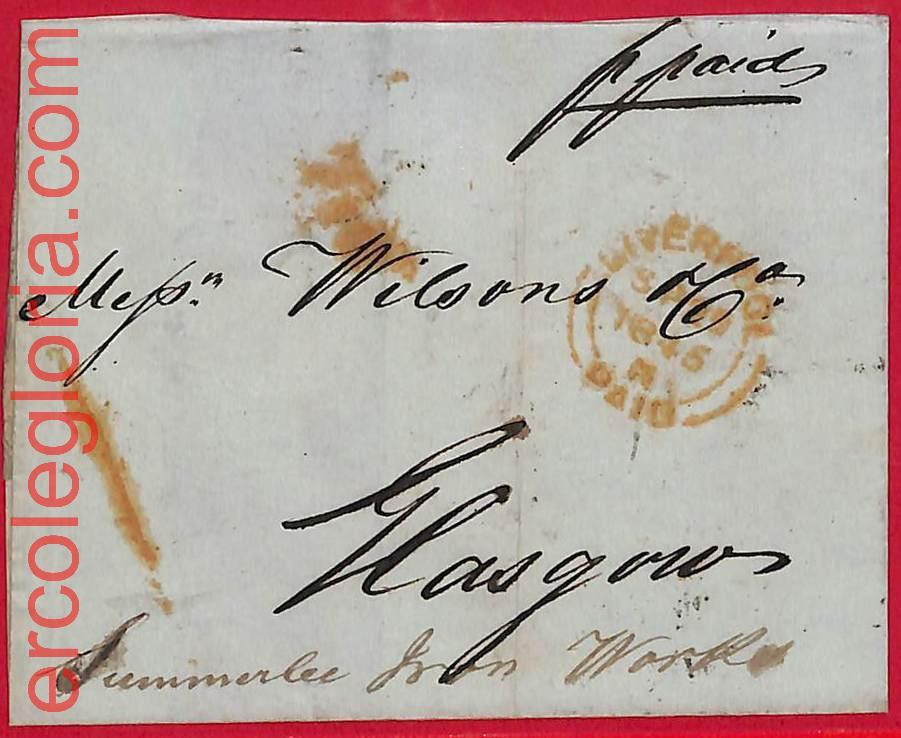 p paid
Messrs Wilsons & Co.
Glasgow
Summerlee Iron Works
LIVERPOOL
PAID
ercolegloria.com